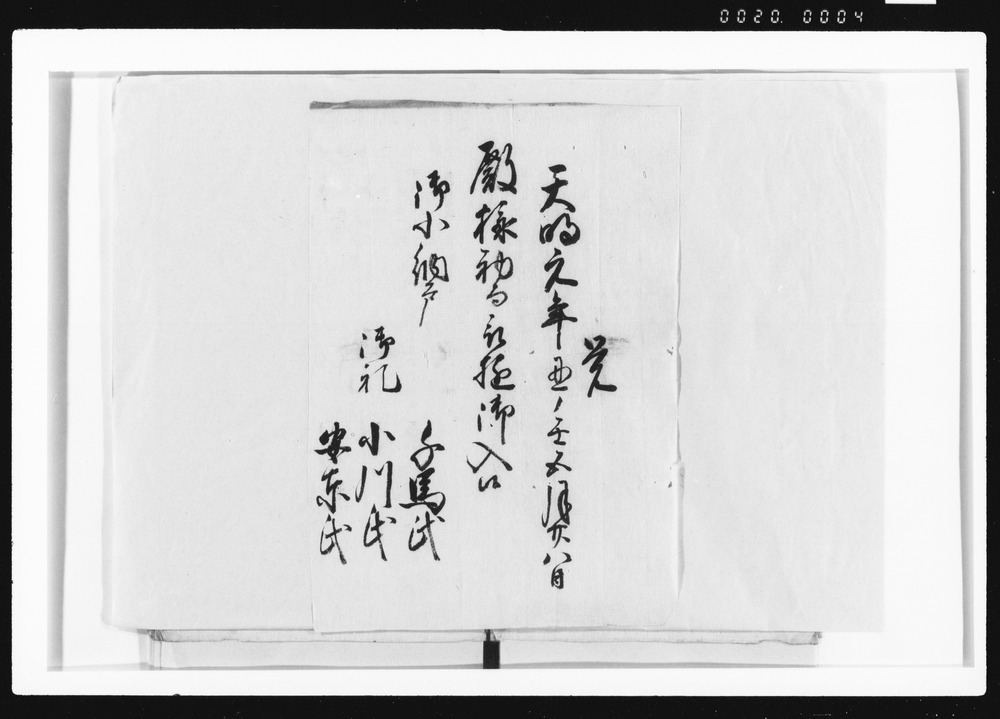 0020. 0004
覚
天明元年丑ノ壬五月廿八日
殿様初而被遊御入
御小納戸
御礼
千馬氏
小川氏
安東氏